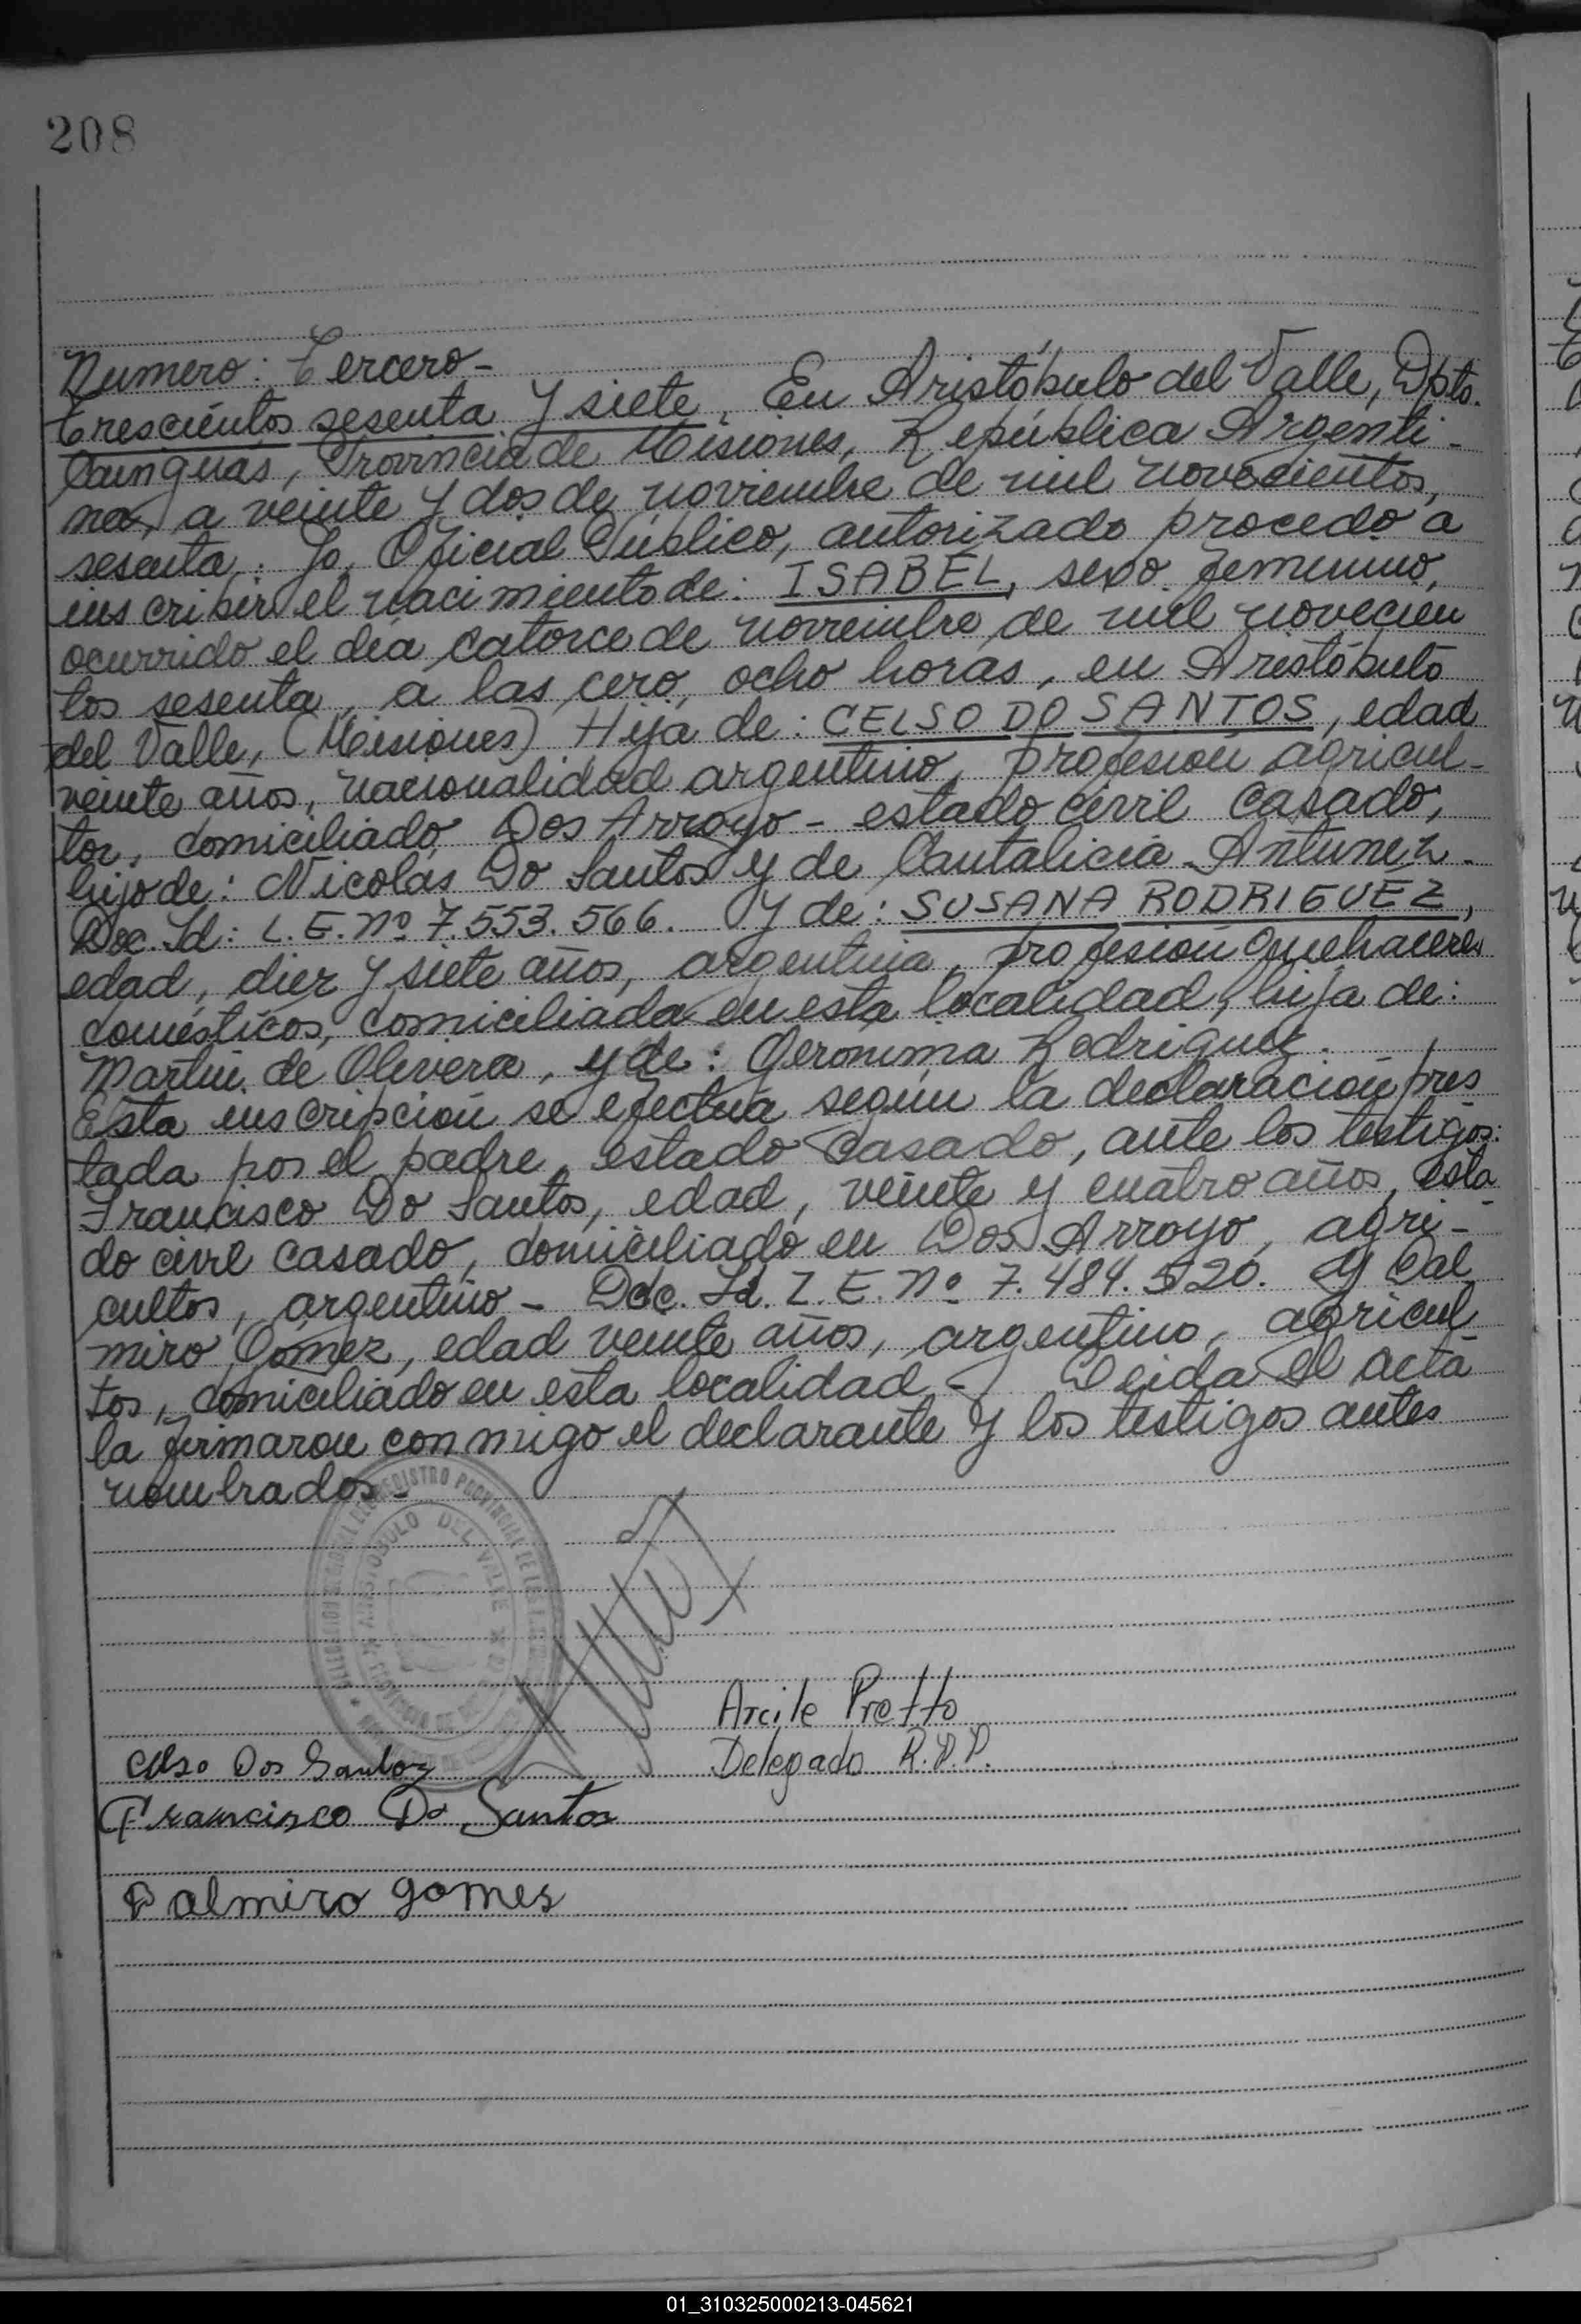 208
Numero: Tercero-
Trescientos sesenta y siete, En Aristóbulo del Valle, Dpto.
Cainguas, Provincia de Misiones, República Argenti-
na, a veinte y dos de noviembre de mil novecientos,
sesenta,: Yo, Oficial Público, autorizado procedo a
inscribir el nacimiento de: ISABEL, sexo femenino,
ocurrido el día catorce de noviembre de mil novecien
tos sesenta, a las cero, ocho horas, en Aristóbulo
del Valle, (Misiones) Hija de: CELSO DO SANTOS, edad
veinte años, nacionalidad argentino, profesión agricul-
tor, domiciliado Dos Arroyo - estado civil casado,
hijo de: Nicolás Do Santos y de Cantalicia Antunez.
Doc. Id: L.E. Nº 7.553.566. Y de: SUSANA RODRIGUEZ,
edad, diez y siete años, argentina, profesión Quehaceres
domésticos, domiciliada en esta localidad, hija de:
Martin de Olivera, y de: Geronima Rodriguez.
Esta inscripción se efectua según la declaración pres
tada por el padre, estado casado, ante los testigos:
Francisco Do Santos, edad, veinte y cuatro años, esta
do civil casado, domiciliado en Dos Arroyo, agri-
cultor, argentino - Doc. Id. L.E. Nº 7.484.520. Y Dal
miro Gómez, edad veinte años, argentino, agricul
tor, domiciliado en esta localidad - Leida el acta
la firmaron con migo el declarante y los testigos antes
nombrados-
REGISTRO PROVINCIAL DE LAS
ARISTOBULO DEL VALLE
Arcile Pretto
Delegado R.P.P.
Celso Dos Santos
Francisco Do Santos
Dalmiro gomes
01_310325000213-045621